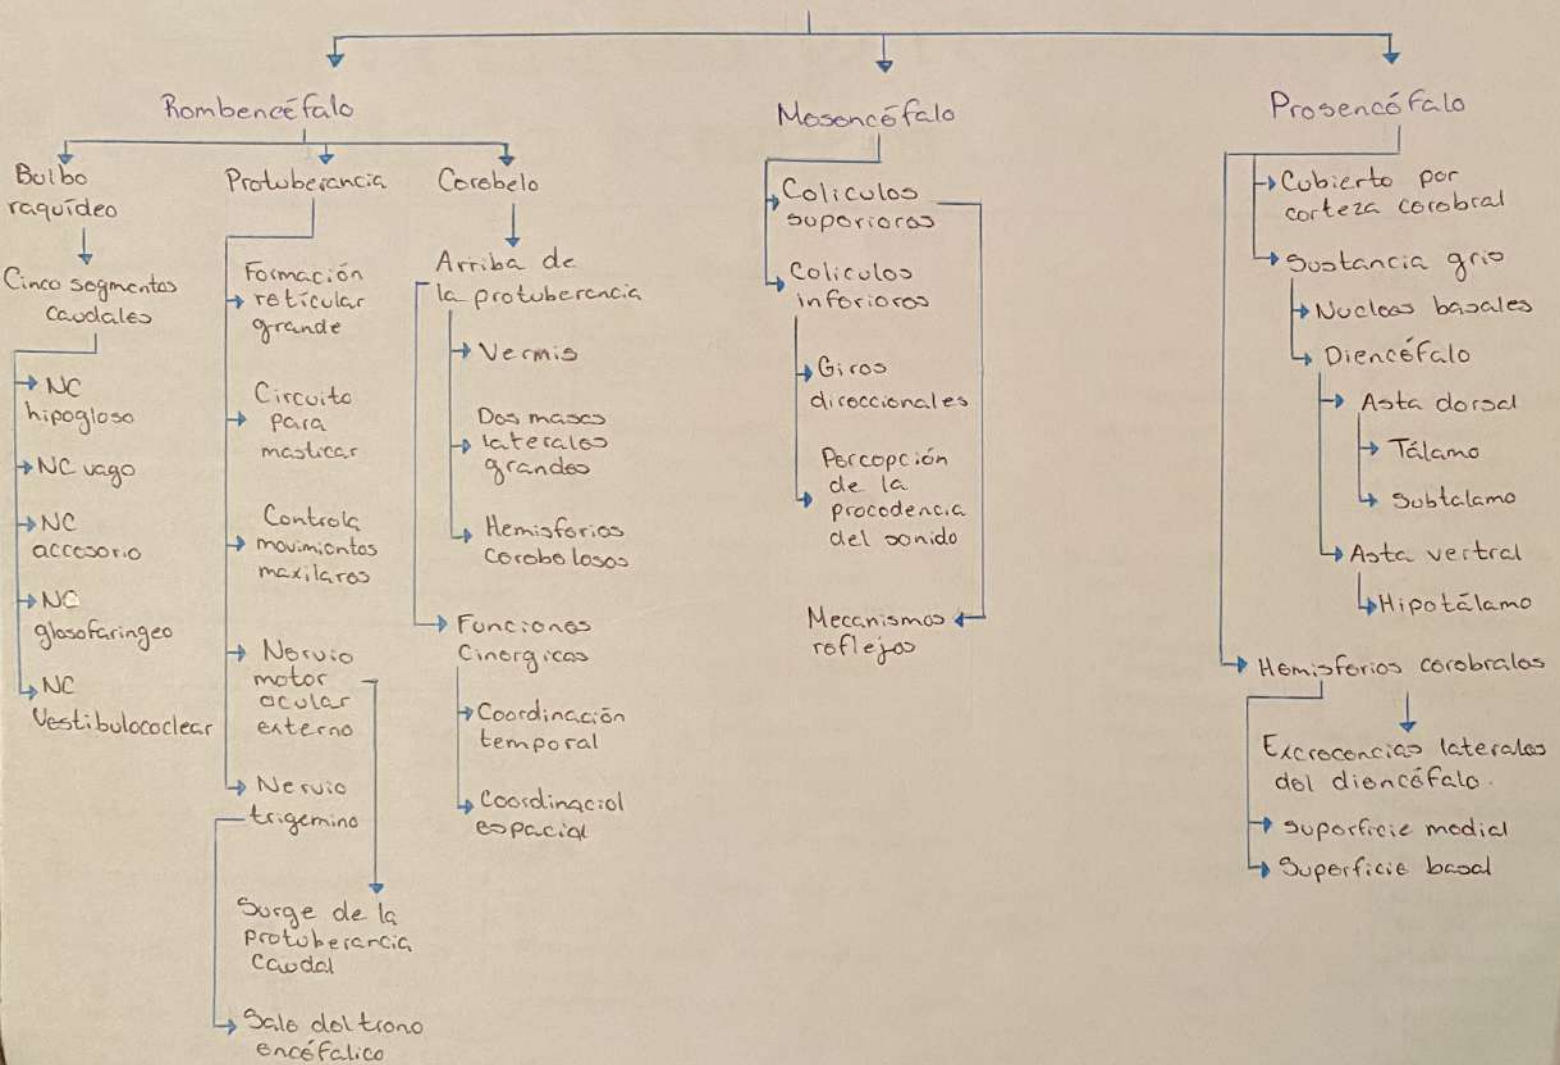 Rombencéfalo
Mesencéfalo
Prosencéfalo
Bulbo
raquídeo
Cinco segmentos
caudales
NC
hipogloso
NC vago
NC
accesorio
NC
glosofaringeo
NC
Vestibulococlear
Protuberancia
Formación
reticular
grande
Circuito
para
masticar
Controla
movimientos
maxilares
Nervio
motor
ocular
externo
Nervio
trigemino
Surge de la
protuberancia
caudal
Sale del trono
encéfalico
Cerebelo
Arriba de
la protuberencia
Vermis
Dos masas
laterales
grandes
Hemisferios
cerebelosos
Funciones
Cinergicas
Coordinación
temporal
Coordinaciol
espacial
Coliculos
superiores
Coliculos
inferiores
Giros
direccionales
Percepción
de la
procedencia
del sonido
Mecanismos
reflejos
Cubierto por
corteza cerebral
Sustancia gris
Nucleos basales
Diencéfalo
Asta dorsal
Tálamo
Subtalamo
Asta vertral
Hipotálamo
Hemisferios cerebrales
Excrecencias laterales
del diencéfalo.
Superficie medial
Superficie basal